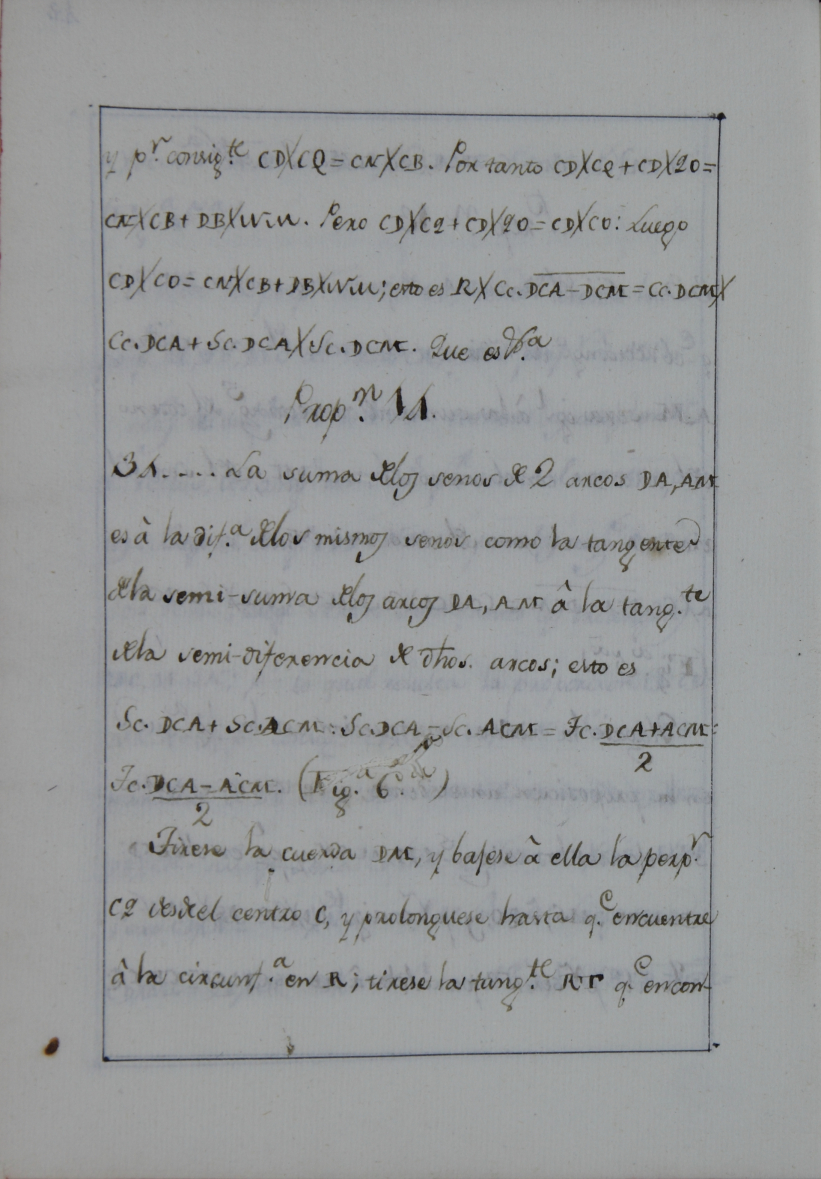 y pr. consigte CD╳CQ = CN╳CB. Por tanto CD╳CQ + CD╳QO =
CN╳CB + DB╳NM. Pero CD╳CQ + CD╳QO = CD╳CO: Luego
CD╳CO = CN╳CB + DB╳NM; esto es R╳Cc. DCA − DCM = Cc. DCM╳
Cc. DCA + Sc. DCA╳Sc. DCM. Que es
Propn. 11.
31.... La suma de los senos de 2 arcos DA, AM
es à la dif.a de los mismos senos como la tangente
de la semi-suma de los arcos DA, AM â la tang.te
de la semi-diferencia de dhos. arcos; esto es
Sc. DCA + Sc. ACM : Sc. DCA − Sc. ACM = Tc. DCA + ACM :
2
Tc. DCA − ACM. (Fig.a 6.)
2
Tirese la cuerda DM, y bajese â ella la perpr.
CQ desde el centro C, y prolonguese hasta q.e encuentre
â la circunf.a en R; tirese la tang.te RT q.e encon-